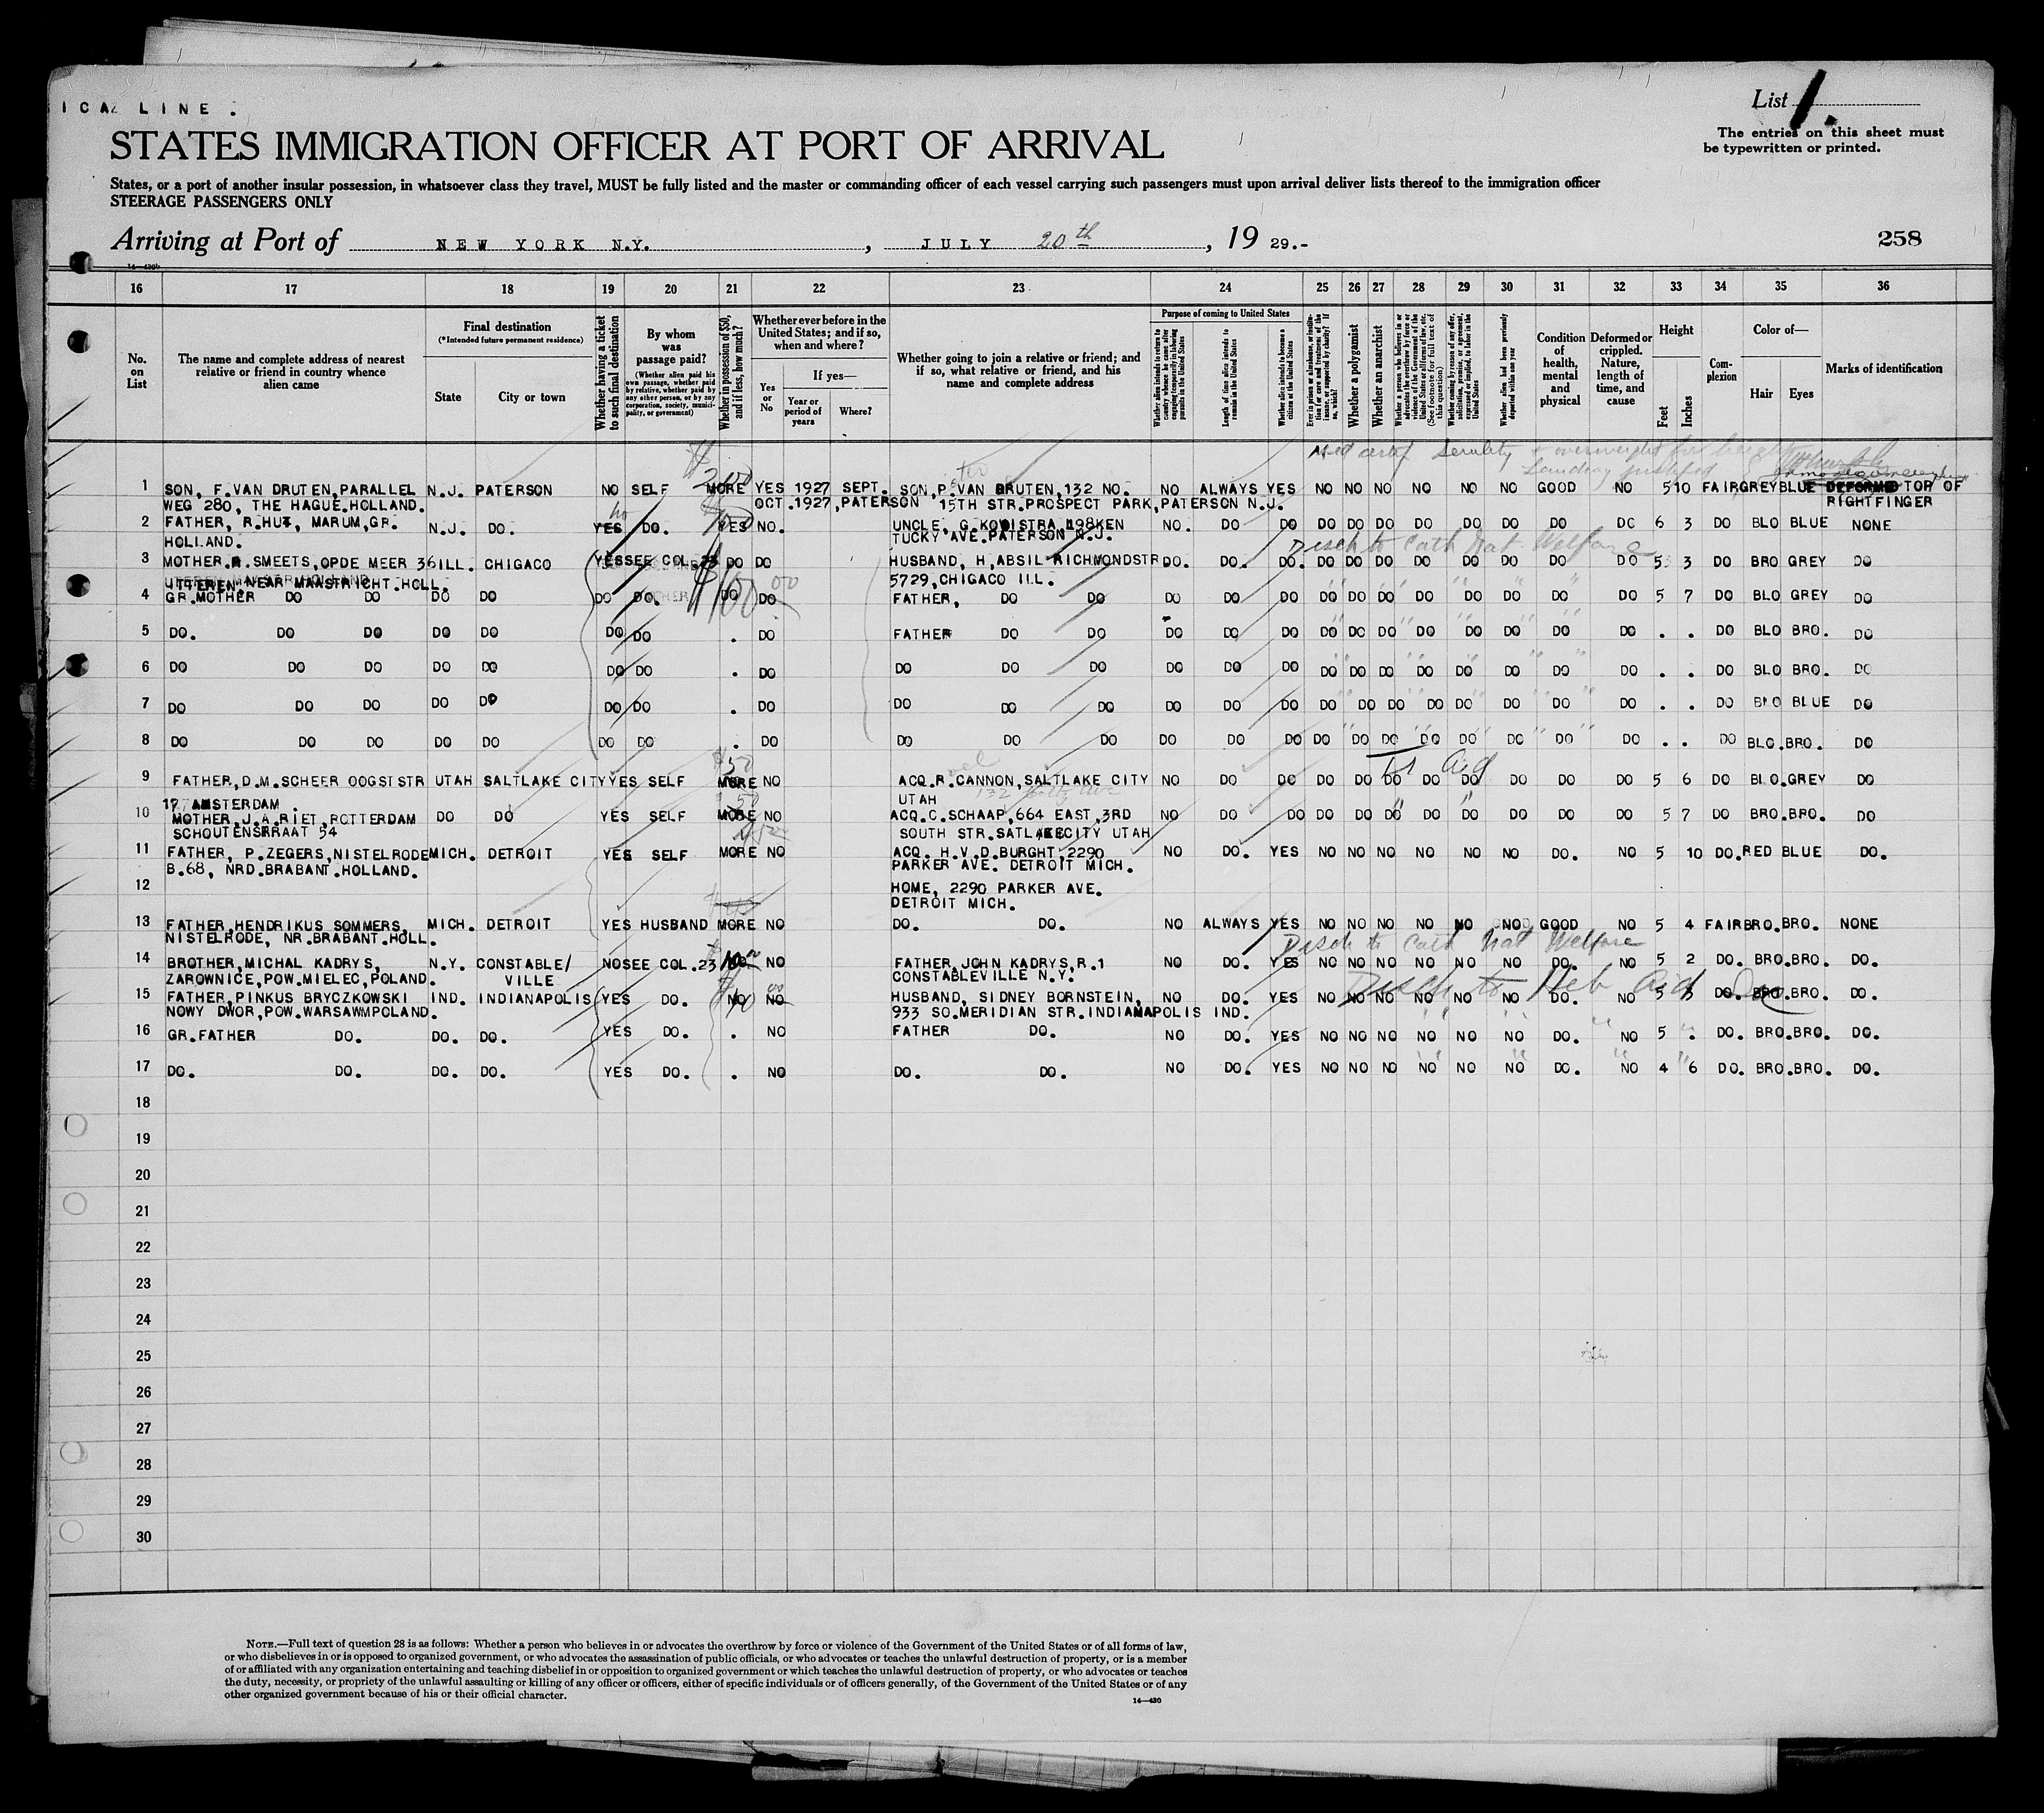 ICA LINE.
List 1.
The entries on this sheet must
be typewritten or printed.
STATES IMMIGRATION OFFICER AT PORT OF ARRIVAL
States, or a port of another insular possession, in whatsoever class they travel, MUST be fully listed and the master or commanding officer of each vessel carrying such passengers must upon arrival deliver lists thereof to the immigration officer
STEERAGE PASSENGERS ONLY
Arriving at Port of NEW YORK N.Y., JULY 20th, 19 29.-
258
16 17 18 19 20 21 22 23 24 25 26 27 28 29 30 31 32 33 34 35 36
No. on List
The name and complete address of nearest relative or friend in country whence alien came
Final destination
(*Intended future permanent residence)
State
City or town
Whether having a ticket to such final destination
By whom was passage paid?
(Whether alien paid his own passage, whether paid by relative, whether paid by any other person, or by any corporation, society, municipality, or government)
Whether in possession of $50, and if less, how much?
Whether ever before in the United States; and if so, when and where?
Yes or No
If yes—
Year or period of years
Where?
Whether going to join a relative or friend; and if so, what relative or friend, and his name and complete address
Purpose of coming to United States
Whether alien intends to return to country whence he came after engaging temporarily in laboring pursuits in the United States
Length of time alien intends to remain in the United States
Whether alien intends to become a citizen of the United States
Whether a polygamist
Whether an anarchist
Condition of health, mental and physical
Deformed or crippled. Nature, length of time, and cause
Height
Feet
Inches
Complexion
Color of—
Hair
Eyes
Marks of identification
1 SON, F.VAN DRUTEN,PARALLEL N.J. PATERSON NO SELF MORE YES 1927 SEPT. SON,P.VAN DRUTEN,132 NO. NO ALWAYS YES NO NO NO NO NO NO GOOD NO 5 10 FAIR GREY BLUE DEFORMED TOP OF
WEG 280, THE HAGUE.HOLLAND. OCT.1927,PATERSON 15TH STR.PROSPECT PARK,PATERSON N.J. RIGHTFINGER
2 FATHER, R.HUT, MARUM,GR. N.J. DO. YES DO. YES NO. UNCLE, G.KOOISTRA,198KEN NO. DO DO DO DO DO DO DO DO DO DO 6 3 DO BLO BLUE NONE
HOLLAND. TUCKY AVE.PATERSON N.J.
Disch to Cath Nat. Welfare
3 MOTHER.R. SMEETS,OPDE MEER 36 ILL. CHIGACO YES SEE COL.23 DO DO HUSBAND, H,ABSIL RICHMONDSTR DO. DO. DO. DO DO DO DO DO DO DO DO 5 3 DO BRO GREY DO
NEAR MAASTRICHT.HOLL. 5729,CHIGACO ILL.
4 GR.MOTHER DO DO DO DO DO DO. DO DO FATHER, DO DO DO DO DO DO DO DO DO DO DO DO DO 5 7 DO BLO GREY DO
5 DO. DO DO DO DO DO DO . DO FATHER DO DO DO DO DO DO DO DO DO DO DO DO DO . . DO BLO BRO. DO
6 DO DO DO DO DO DO DO . DO DO DO DO DO DO DO DO DO DO DO DO DO DO DO . . DO BLO BRO. DO
7 DO DO DO DO DO DO DO . DO DO DO DO DO DO DO DO DO DO DO DO DO DO DO . . DO BLO BLUE DO
8 DO DO DO DO DO DO DO . DO DO DO DO DO DO DO DO DO DO DO DO DO DO DO . . DO BLO.BRO. DO
9 FATHER,D.M.SCHEER OOGSTSTR UTAH SALTLAKE CITY YES SELF MORE NO ACQ.R.CANNON,SALTLAKE CITY NO DO DO DO DO DO DO DO DO DO DO 5 6 DO BLO.GREY DO
AMSTERDAM. UTAH
10 MOTHER,J.A.RIET,ROTTERDAM DO DO YES SELF MORE NO ACQ.C.SCHAAP,664 EAST,3RD NO DO DO DO DO DO DO DO DO DO DO 5 7 DO BRO.BRO. DO
SCHOUTENSRRAAT 54 SOUTH STR.SATLAKECITY UTAH
11 FATHER, P.ZEGERS,NISTELRODE MICH. DETROIT YES SELF MORE NO ACQ. H.V.D.BURGHT,2290 NO DO. YES NO NO NO NO NO NO DO. NO 5 10 DO. RED BLUE DO.
B.68, NRD.BRABANT.HOLLAND. PARKER AVE. DETROIT MICH.
12 HOME, 2290 PARKER AVE.
DETROIT MICH.
13 FATHER,HENDRIKUS SOMMERS, MICH. DETROIT YES HUSBAND MORE NO DO. DO. NO ALWAYS YES NO NO NO NO NO NO GOOD NO 5 4 FAIR BRO.BRO. NONE
NISTELRODE, NR.BRABANT.HOLL.
Disch to Cath Nat Welfare
14 BROTHER,MICHAL KADRYS, N.Y. CONSTABLE/ NO SEE COL.23 NO FATHER,JOHN KADRYS,R.1 NO DO. YES NO NO NO NO NO NO DO. NO 5 2 DO. BRO.BRO. DO.
ZAROWNICE,POW.MIELEC,POLAND. VILLE CONSTABLEVILLE N.Y.
Disch to Heb Aid
15 FATHER,PINKUS BRYCZKOWSKI IND. INDIANAPOLIS YES DO. NO NO HUSBAND, SIDNEY BORNSTEIN, NO DO. YES NO NO NO NO NO NO DO. NO 5 3 DO. BRO.BRO. DO.
NOWY DWOR,POW.WARSAWMPOLAND. 933 SO.MERIDIAN STR.INDIANAPOLIS IND.
16 GR.FATHER DO. DO. DO. YES DO. . NO FATHER DO. NO DO. YES NO NO NO NO NO NO DO. NO 5 . DO. BRO.BRO. DO.
17 DO. DO. DO. DO. YES DO. . NO DO. DO. NO DO. YES NO NO NO NO NO NO DO. NO 4 6 DO. BRO.BRO. DO.
18
19
20
21
22
23
24
25
26
27
28
29
30
NOTE.—Full text of question 28 is as follows: Whether a person who believes in or advocates the overthrow by force or violence of the Government of the United States or of all forms of law,
or who disbelieves in or is opposed to organized government, or who advocates the assassination of public officials, or who advocates or teaches the unlawful destruction of property, or is a member
of or affiliated with any organization entertaining and teaching disbelief in or opposition to organized government or which teaches the unlawful destruction of property, or who advocates or teaches
the duty, necessity, or propriety of the unlawful assaulting or killing of any officer or officers, either of specific individuals or of officers generally, of the Government of the United States or of any
other organized government because of his or their official character.
14—430